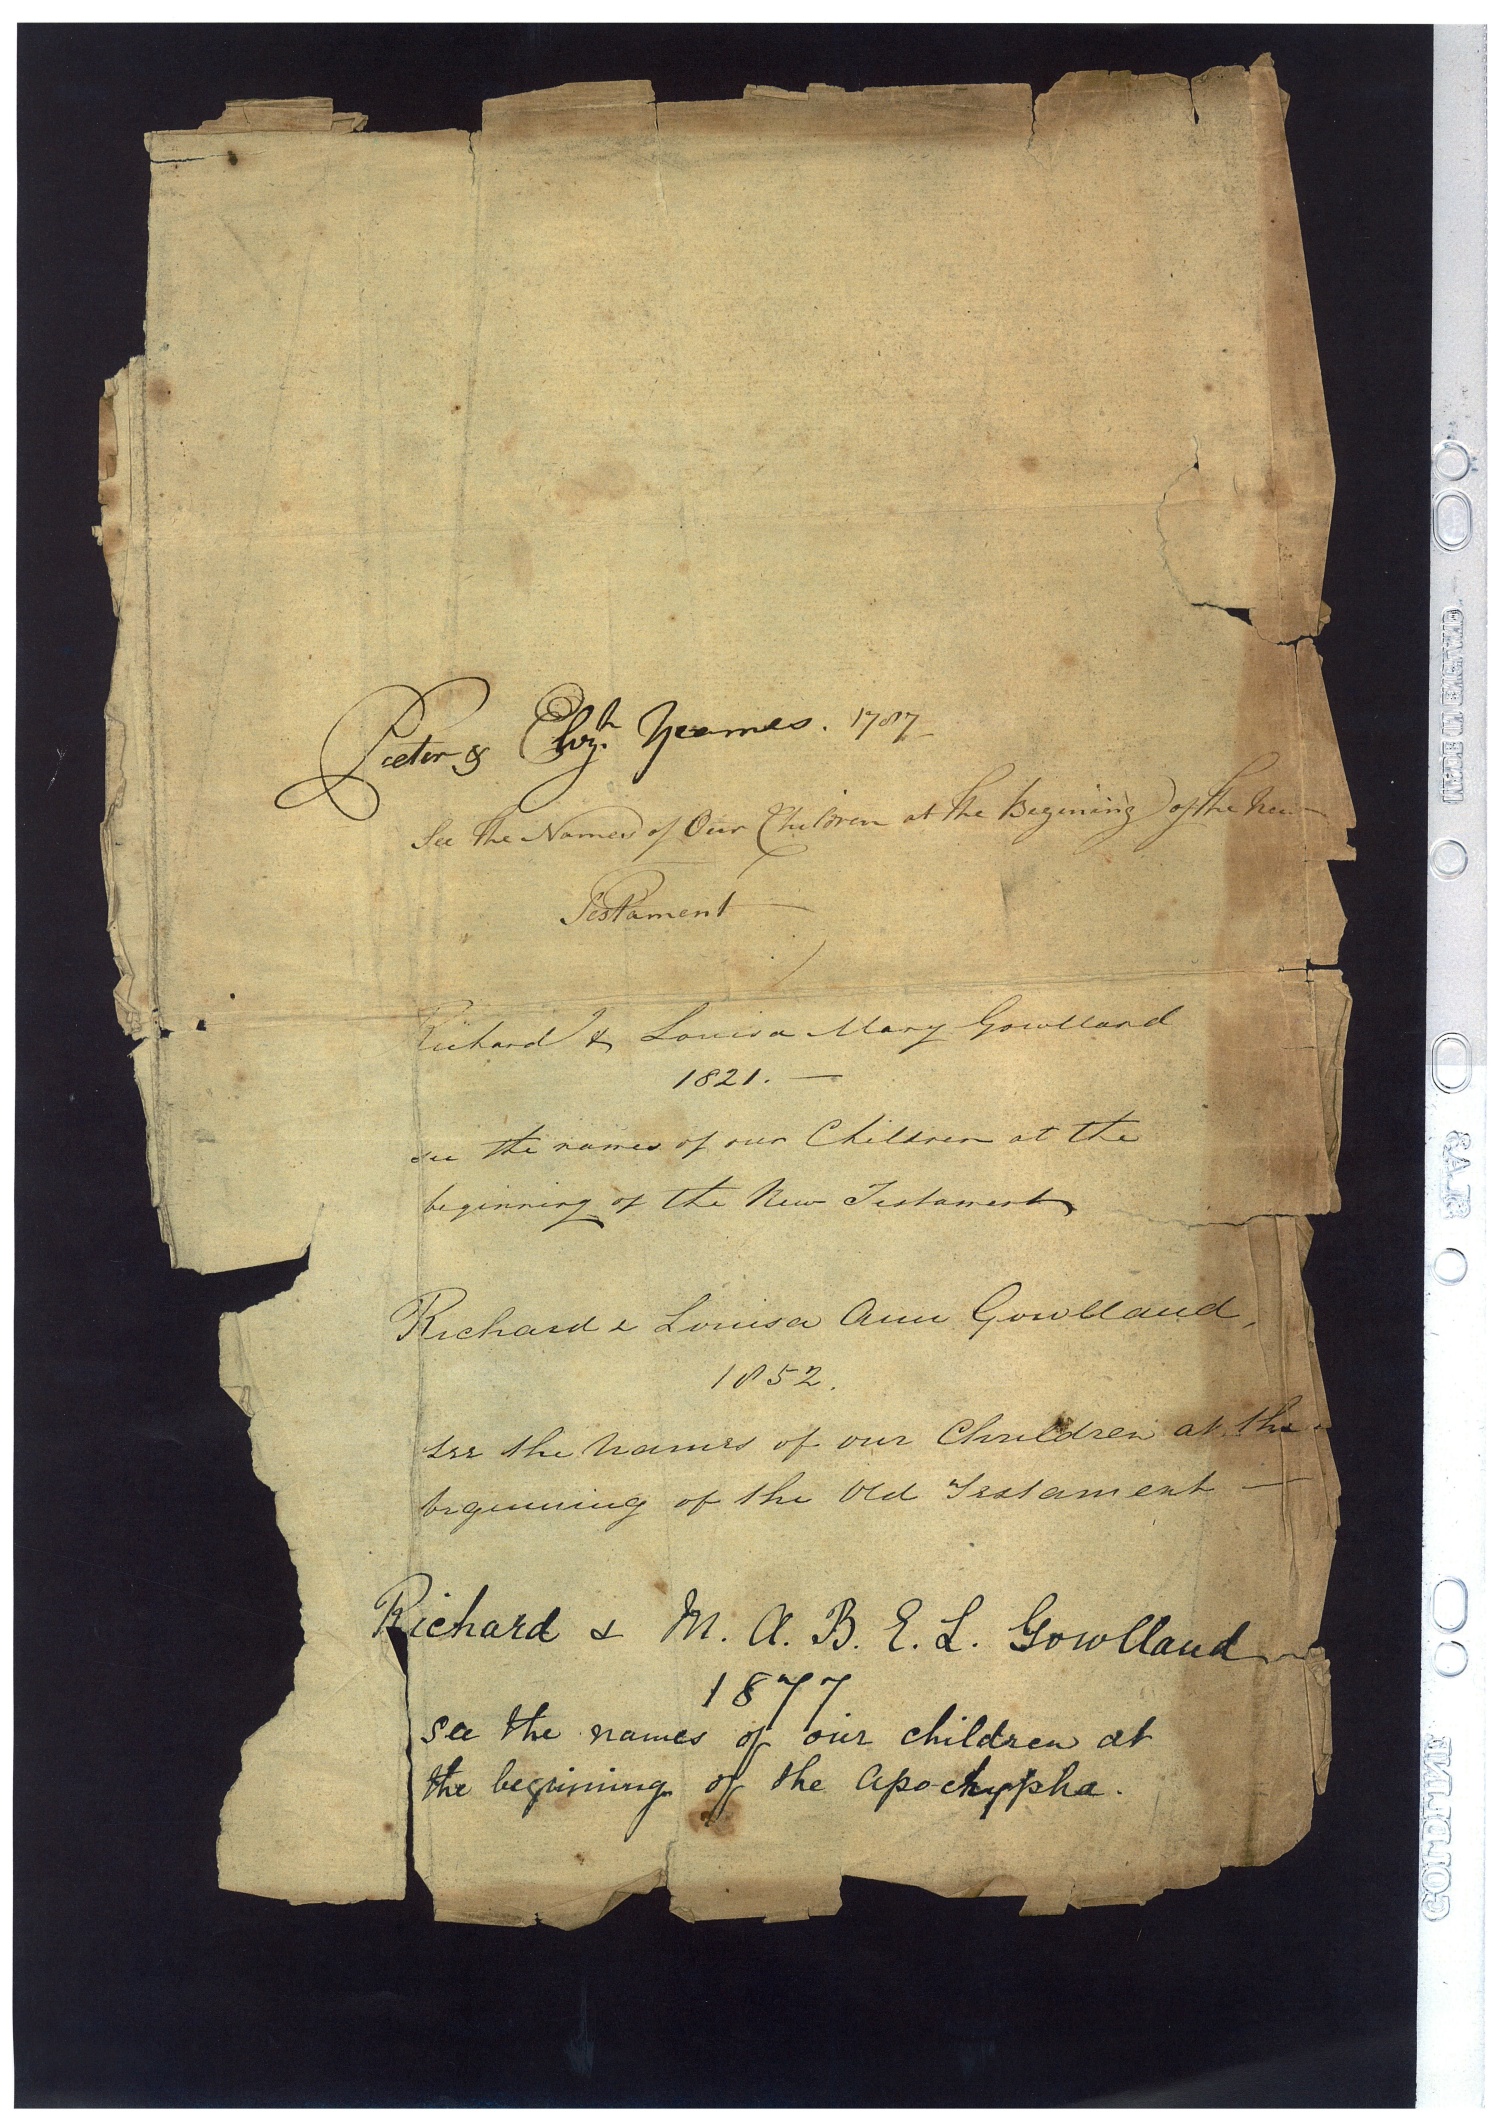 Peter & Elizth. Yeames. 1787
See the Names of Our Children at the Begining of the New
Testament
Richard & Louisa Mary Gowlland
1821. —
see the names of our Children at the
beginning of the New Testament
Richard & Louisa Ann Gowlland,
1852.
see the names of our Children at the
beginning of the Old Testament —
Richard & M. A. B. E. L. Gowlland
1877
see the names of our children at
the beginning of the Apochrypha.